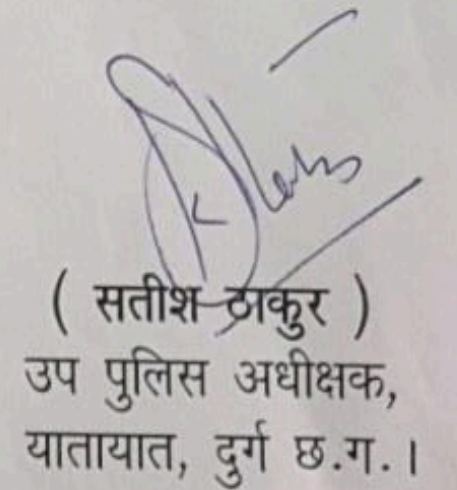 ( सतीश ठाकुर )
उप पुलिस अधीक्षक,
यातायात, दुर्ग छ.ग.।